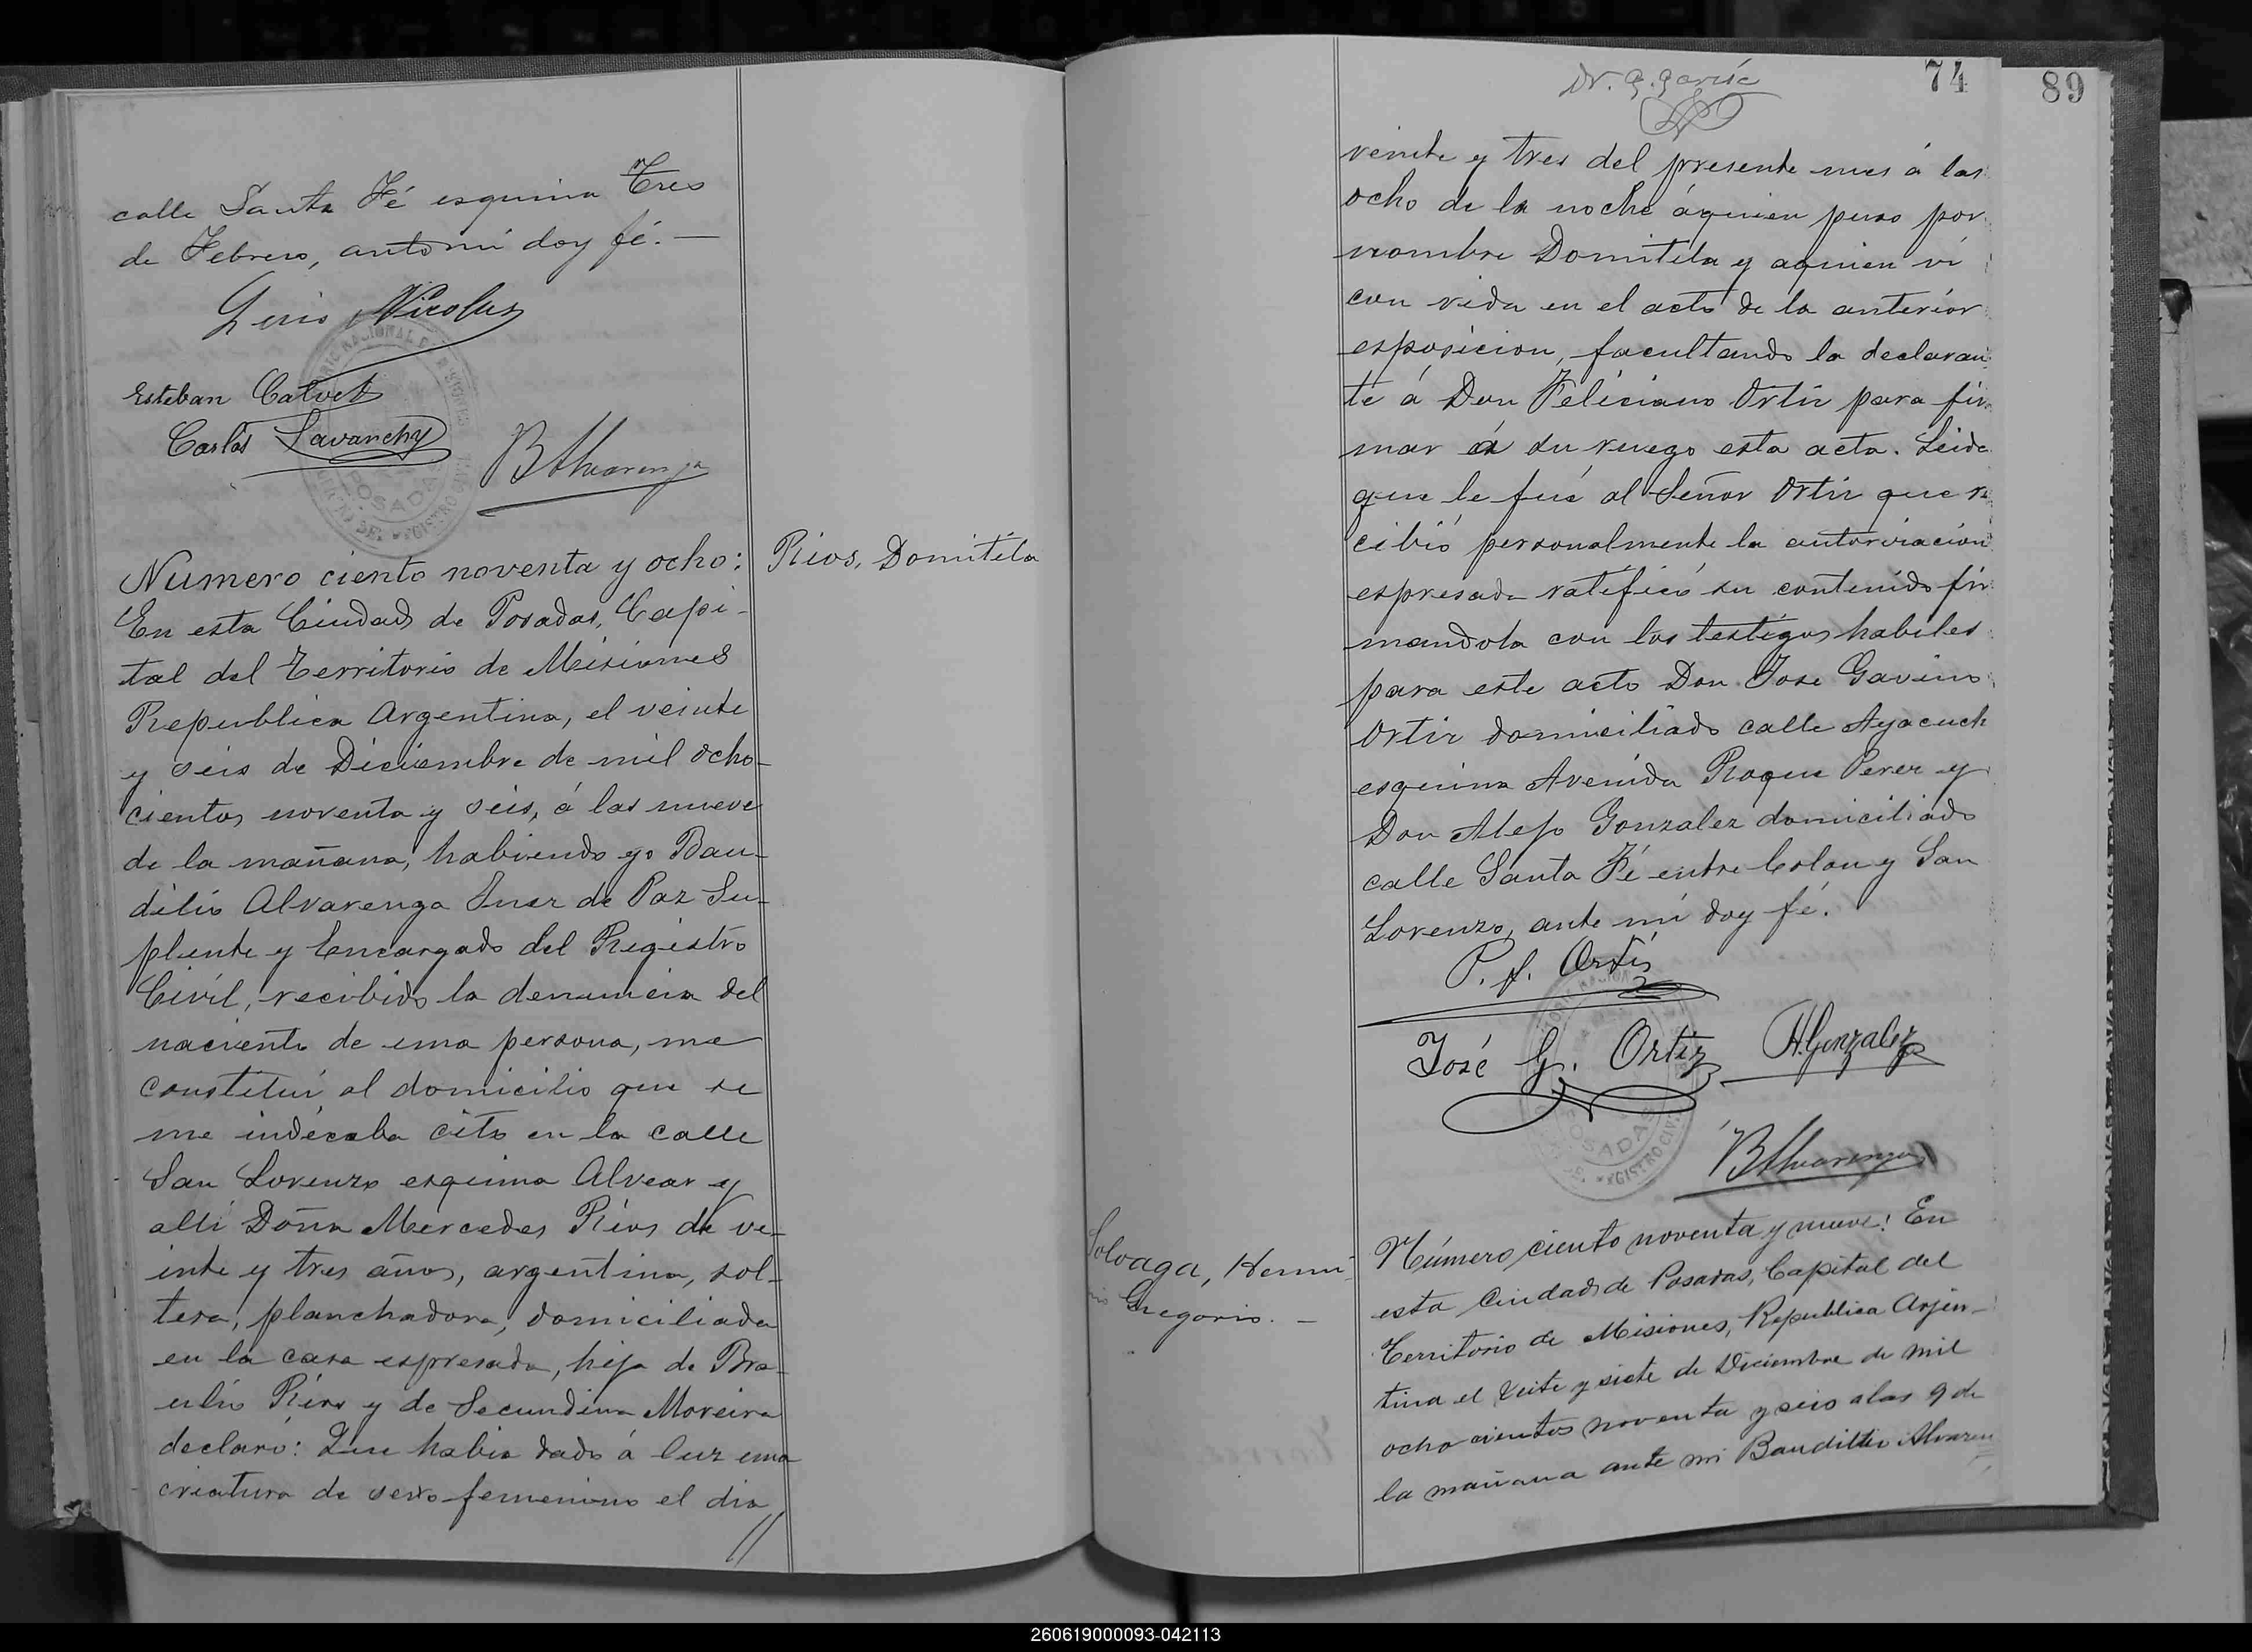 calle Santa Fé esquina Tres
de Febrero, ante mi doy fé.—
Luis Nicolas
Esteban Calvet
Carlos Lavanchy
BAlvarenga
POSADAS
Numero ciento noventa y ocho:
Rios, Domitila
En esta Ciudad de Posadas, Capi-
tal del Territorio de Misiones
Republica Argentina, el veinte
y seis de Diciembre de mil ocho-
cientos noventa y seis, á las nueve
de la mañana, habiendo yo Bau-
dilio Alvarenga Juez de Paz Su-
plente y Encargado del Registro
Civil, recibido la denuncia del
naciente de una persona, me
constituí al domicilio que se
me indicaba cito en la calle
San Lorenzo esquina Alvear y
alli Doña Mercedes Rios de ve-
inte y tres años, argentina, sol-
tera, planchadora, domiciliada
en la casa espresada, hija de Bra-
ulio Rios y de Secundina Moreira
declaró: Que habia dado á luz una
criatura de sexo femenino el dia
//
Dr. G. García
74
89
veinte y tres del presente mes á las
ocho de la noche áquien puso por
nombre Domitila y aquien ví
con vida en el acto de la anterior
esposicion, facultando la declaran
te á Don Feliciano Ortiz para fir
mar á su ruego esta acta. Leida
que le fué al Señor Ortiz que re
cibió personalmente la autorizacion
espresada ratificó su contenido fir
mandola con los testigos habiles
para este acto Don Jose Gavino
Ortiz domiciliado calle Ayacuch
esquina Avenida Roque Perez y
Don Alejo Gonzalez domiciliado
calle Santa Fé entre Colon y San
Lorenzo, ante mí doy fé.
P. f. Ortiz
José G. Ortiz
A. Gonzalez
POSADAS
BAlvarenga
Número ciento noventa y nueve: En
Soloaga, Hermi
nio Gregorio. —
esta Ciudad de Posadas, Capital del
Territorio de Misiones, Republica Arjen-
tina el veite y siete de Diciembre de mil
ocho cientos noventa y seis alas 9 de
la mañana ante mi Baudilio Alvaren
260619000093-042113